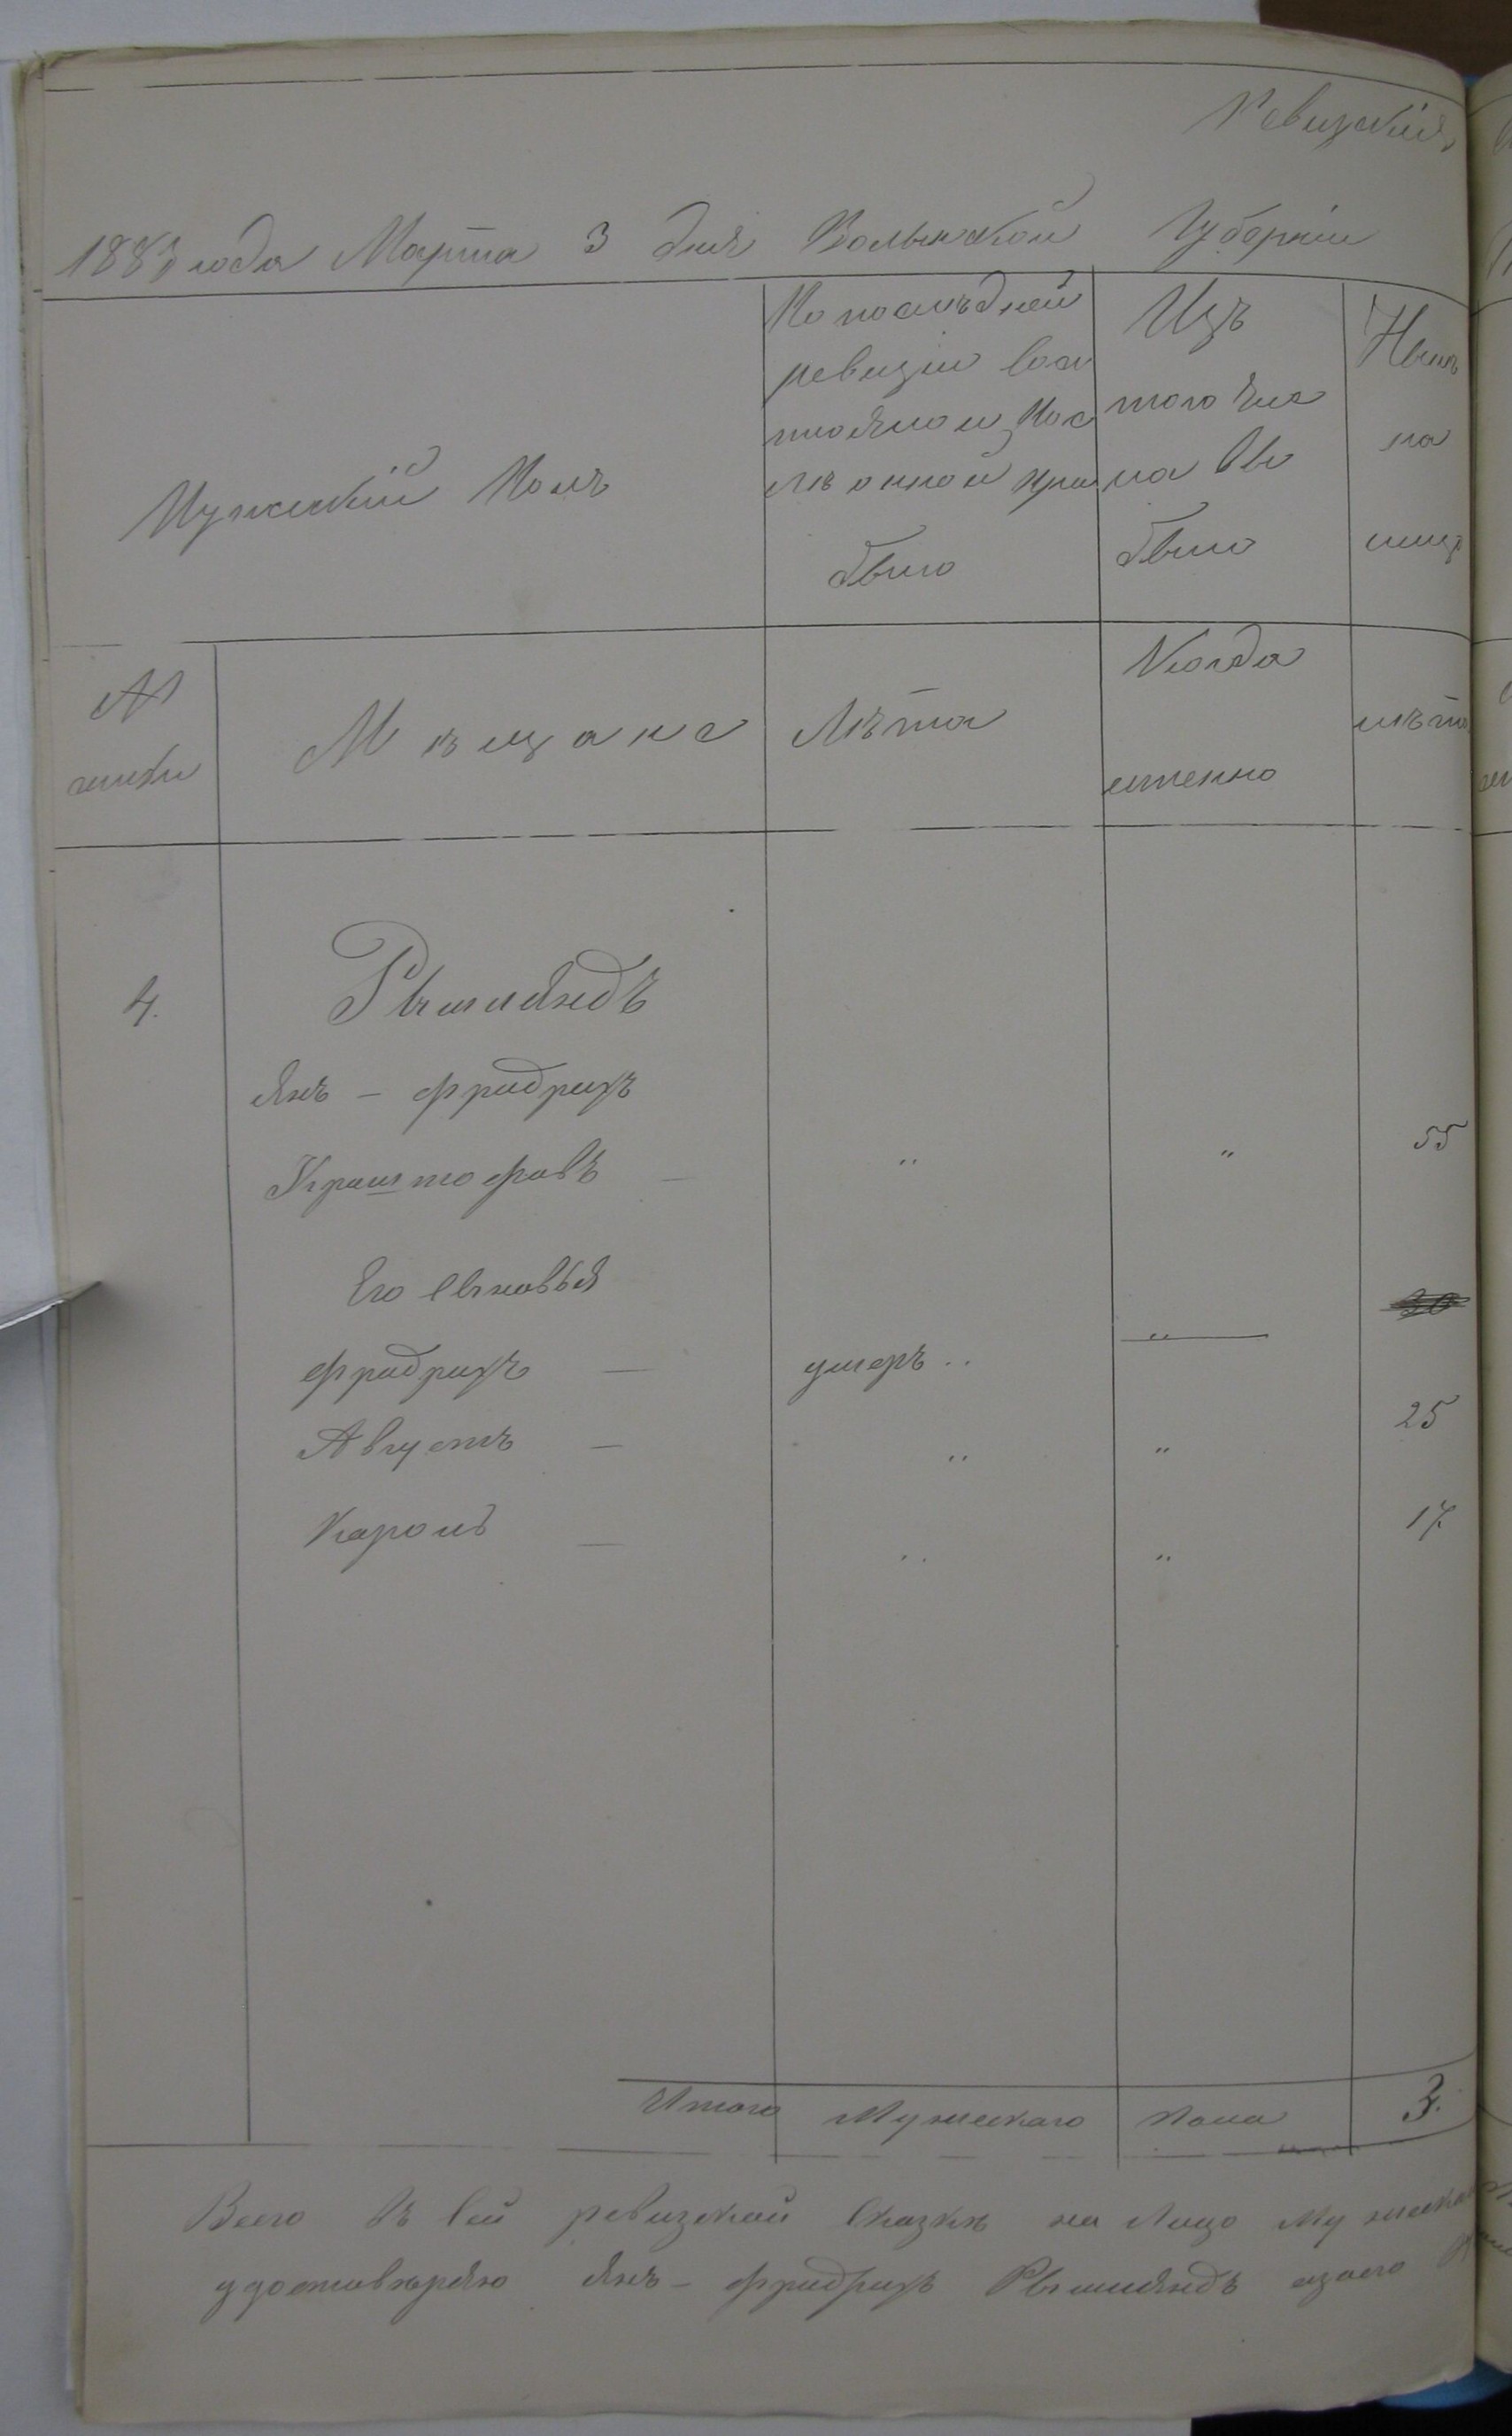 Ревизкія
1883 года Марта 3 дня Волынской Губерніи
Мужскій Полъ
По послѣдней
ревизіи сос
тояло и, пос
лѣ онной при
было
Изъ
того чис
ла вы
было
Нынѣ
на
лице
№
семьи
Мѣщане
Лѣта
Когда
именно
лѣта
4.
Рымшяндъ
Янъ - Фридрихъ
Криштофовъ — " " 55
Его Сыновья
30
Фридрихъ — умеръ .. "
Августъ — " " 25
Кароль — " " 17
Итого Мужескаго пола 3.
Всего въ сей ревизской сказкѣ на лицо Мужеска
удостовѣряю Янъ - Фридрихъ